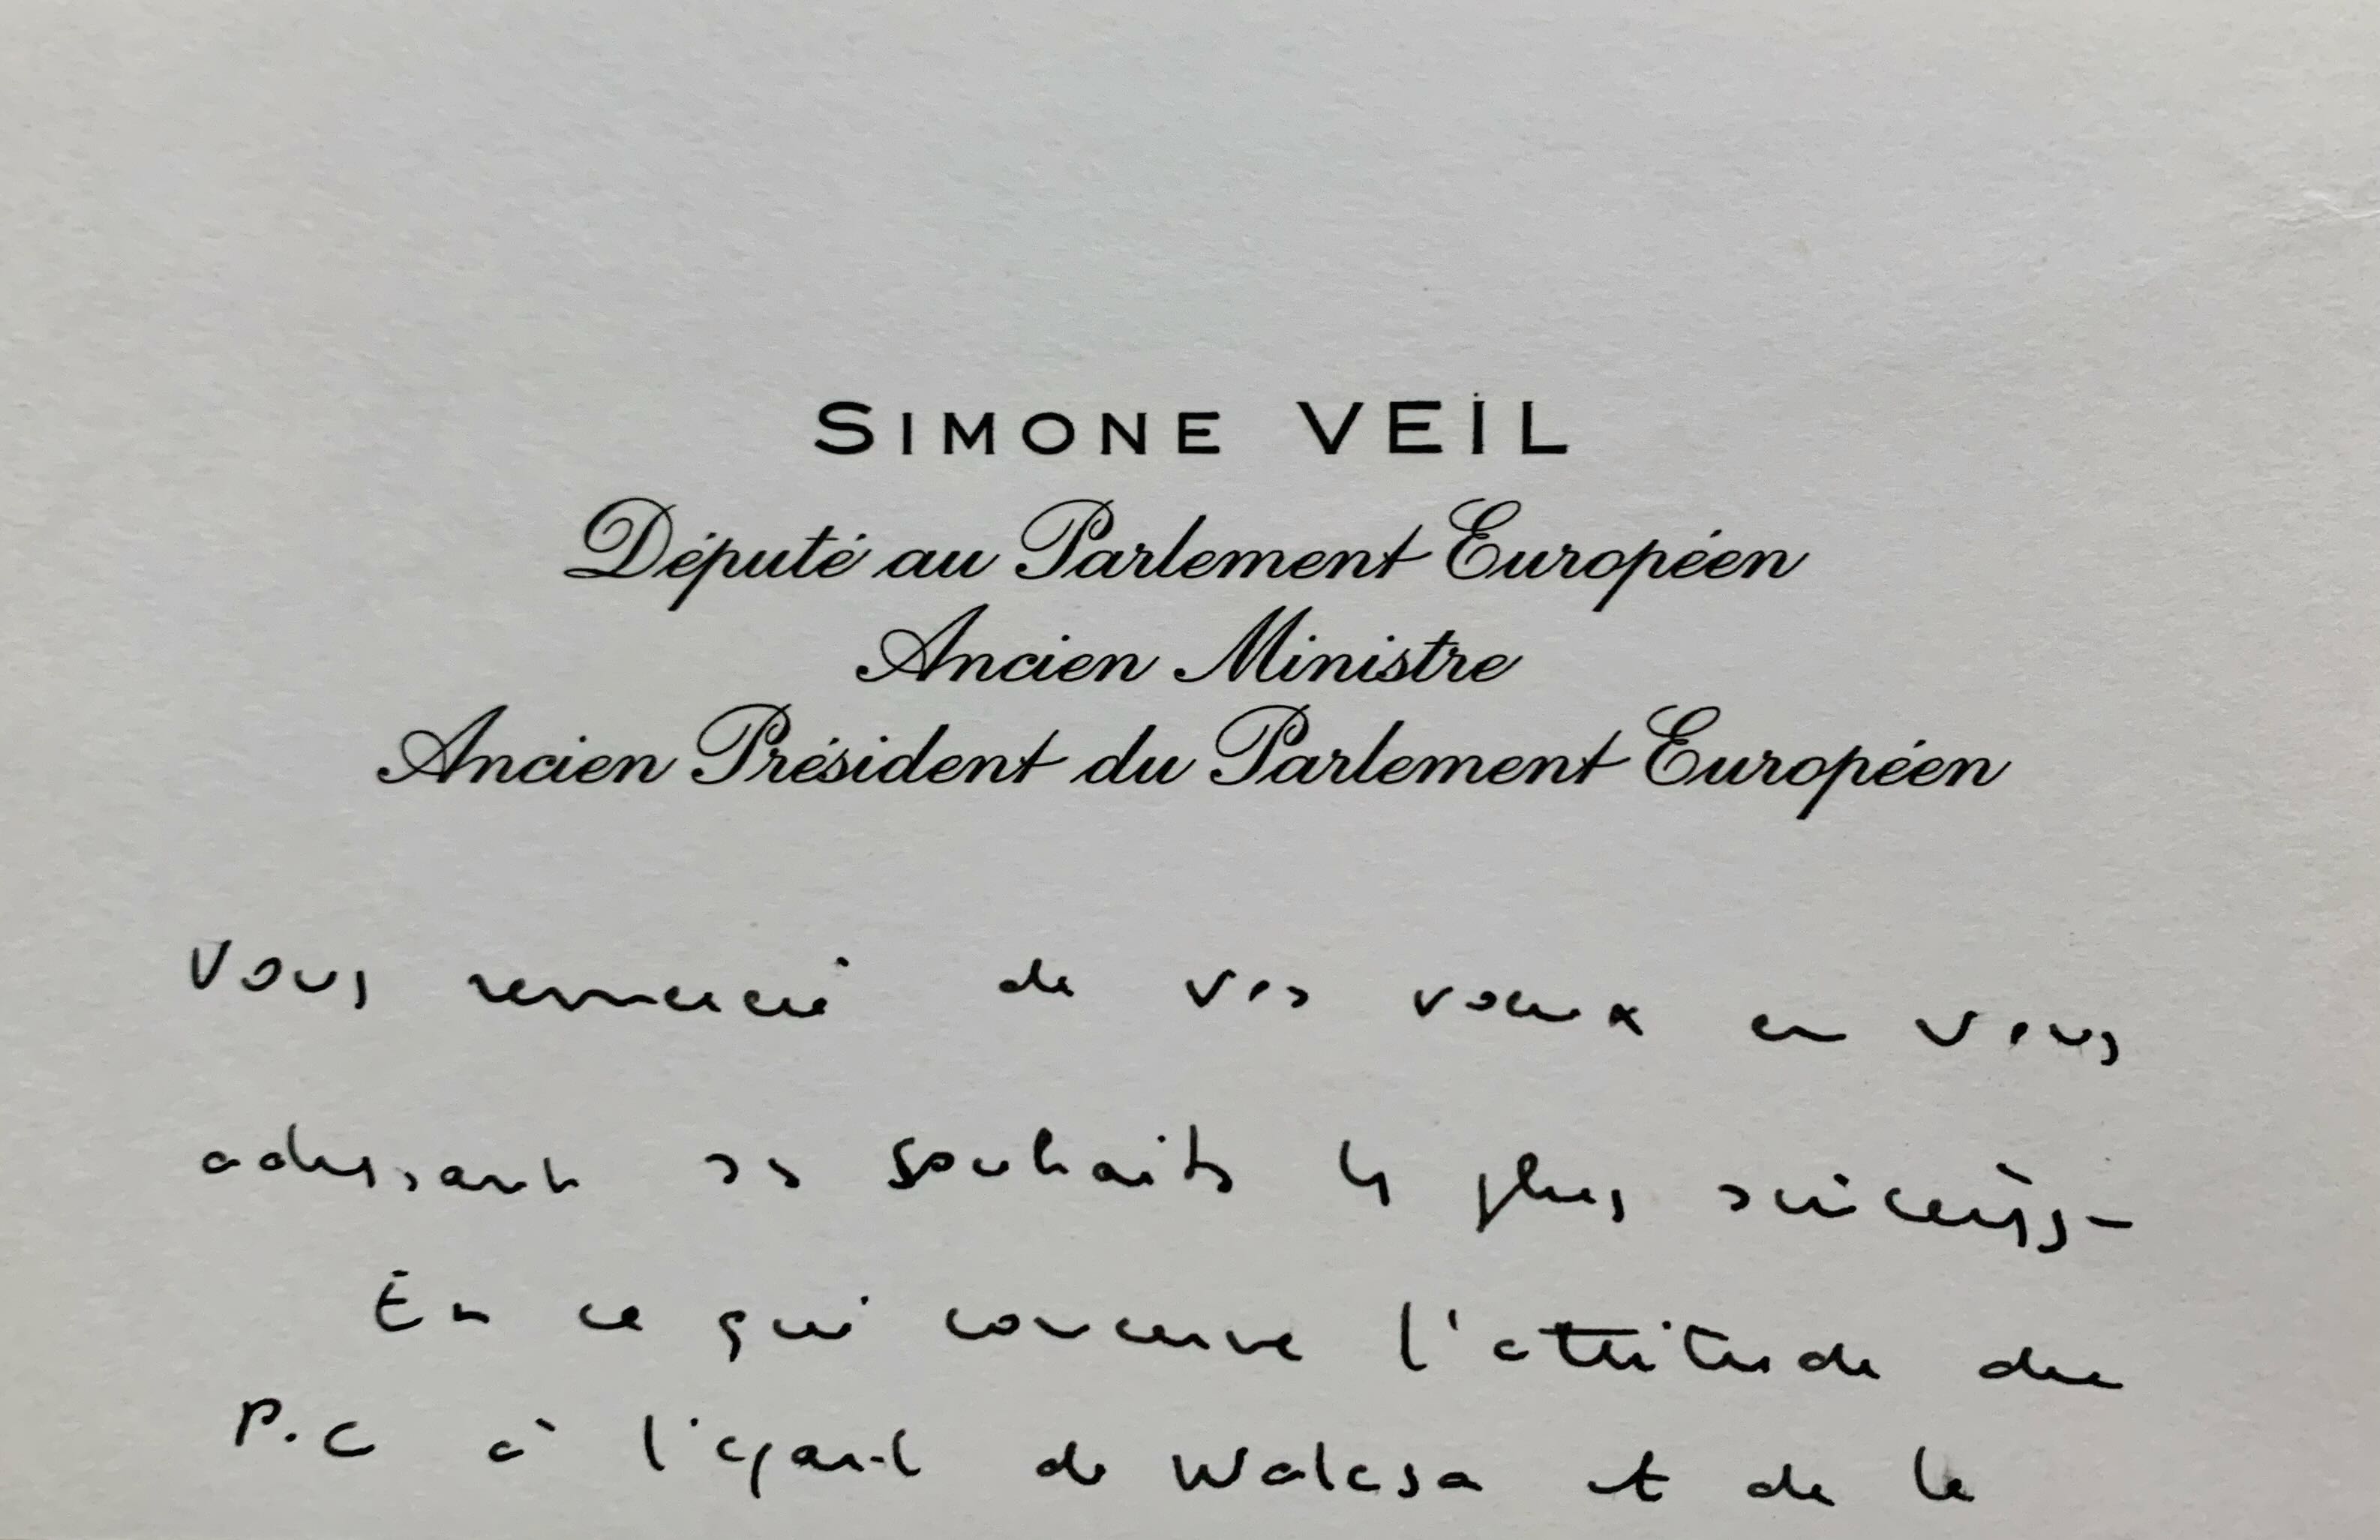 SIMONE VEIL
Député au Parlement Européen
Ancien Ministre
Ancien Président du Parlement Européen
Vous remercie de vos voeux en vous
adressant ses souhaits les plus sincères -
En ce qui concerne l'attitude du
P.C à l'égard de Walesa et de la